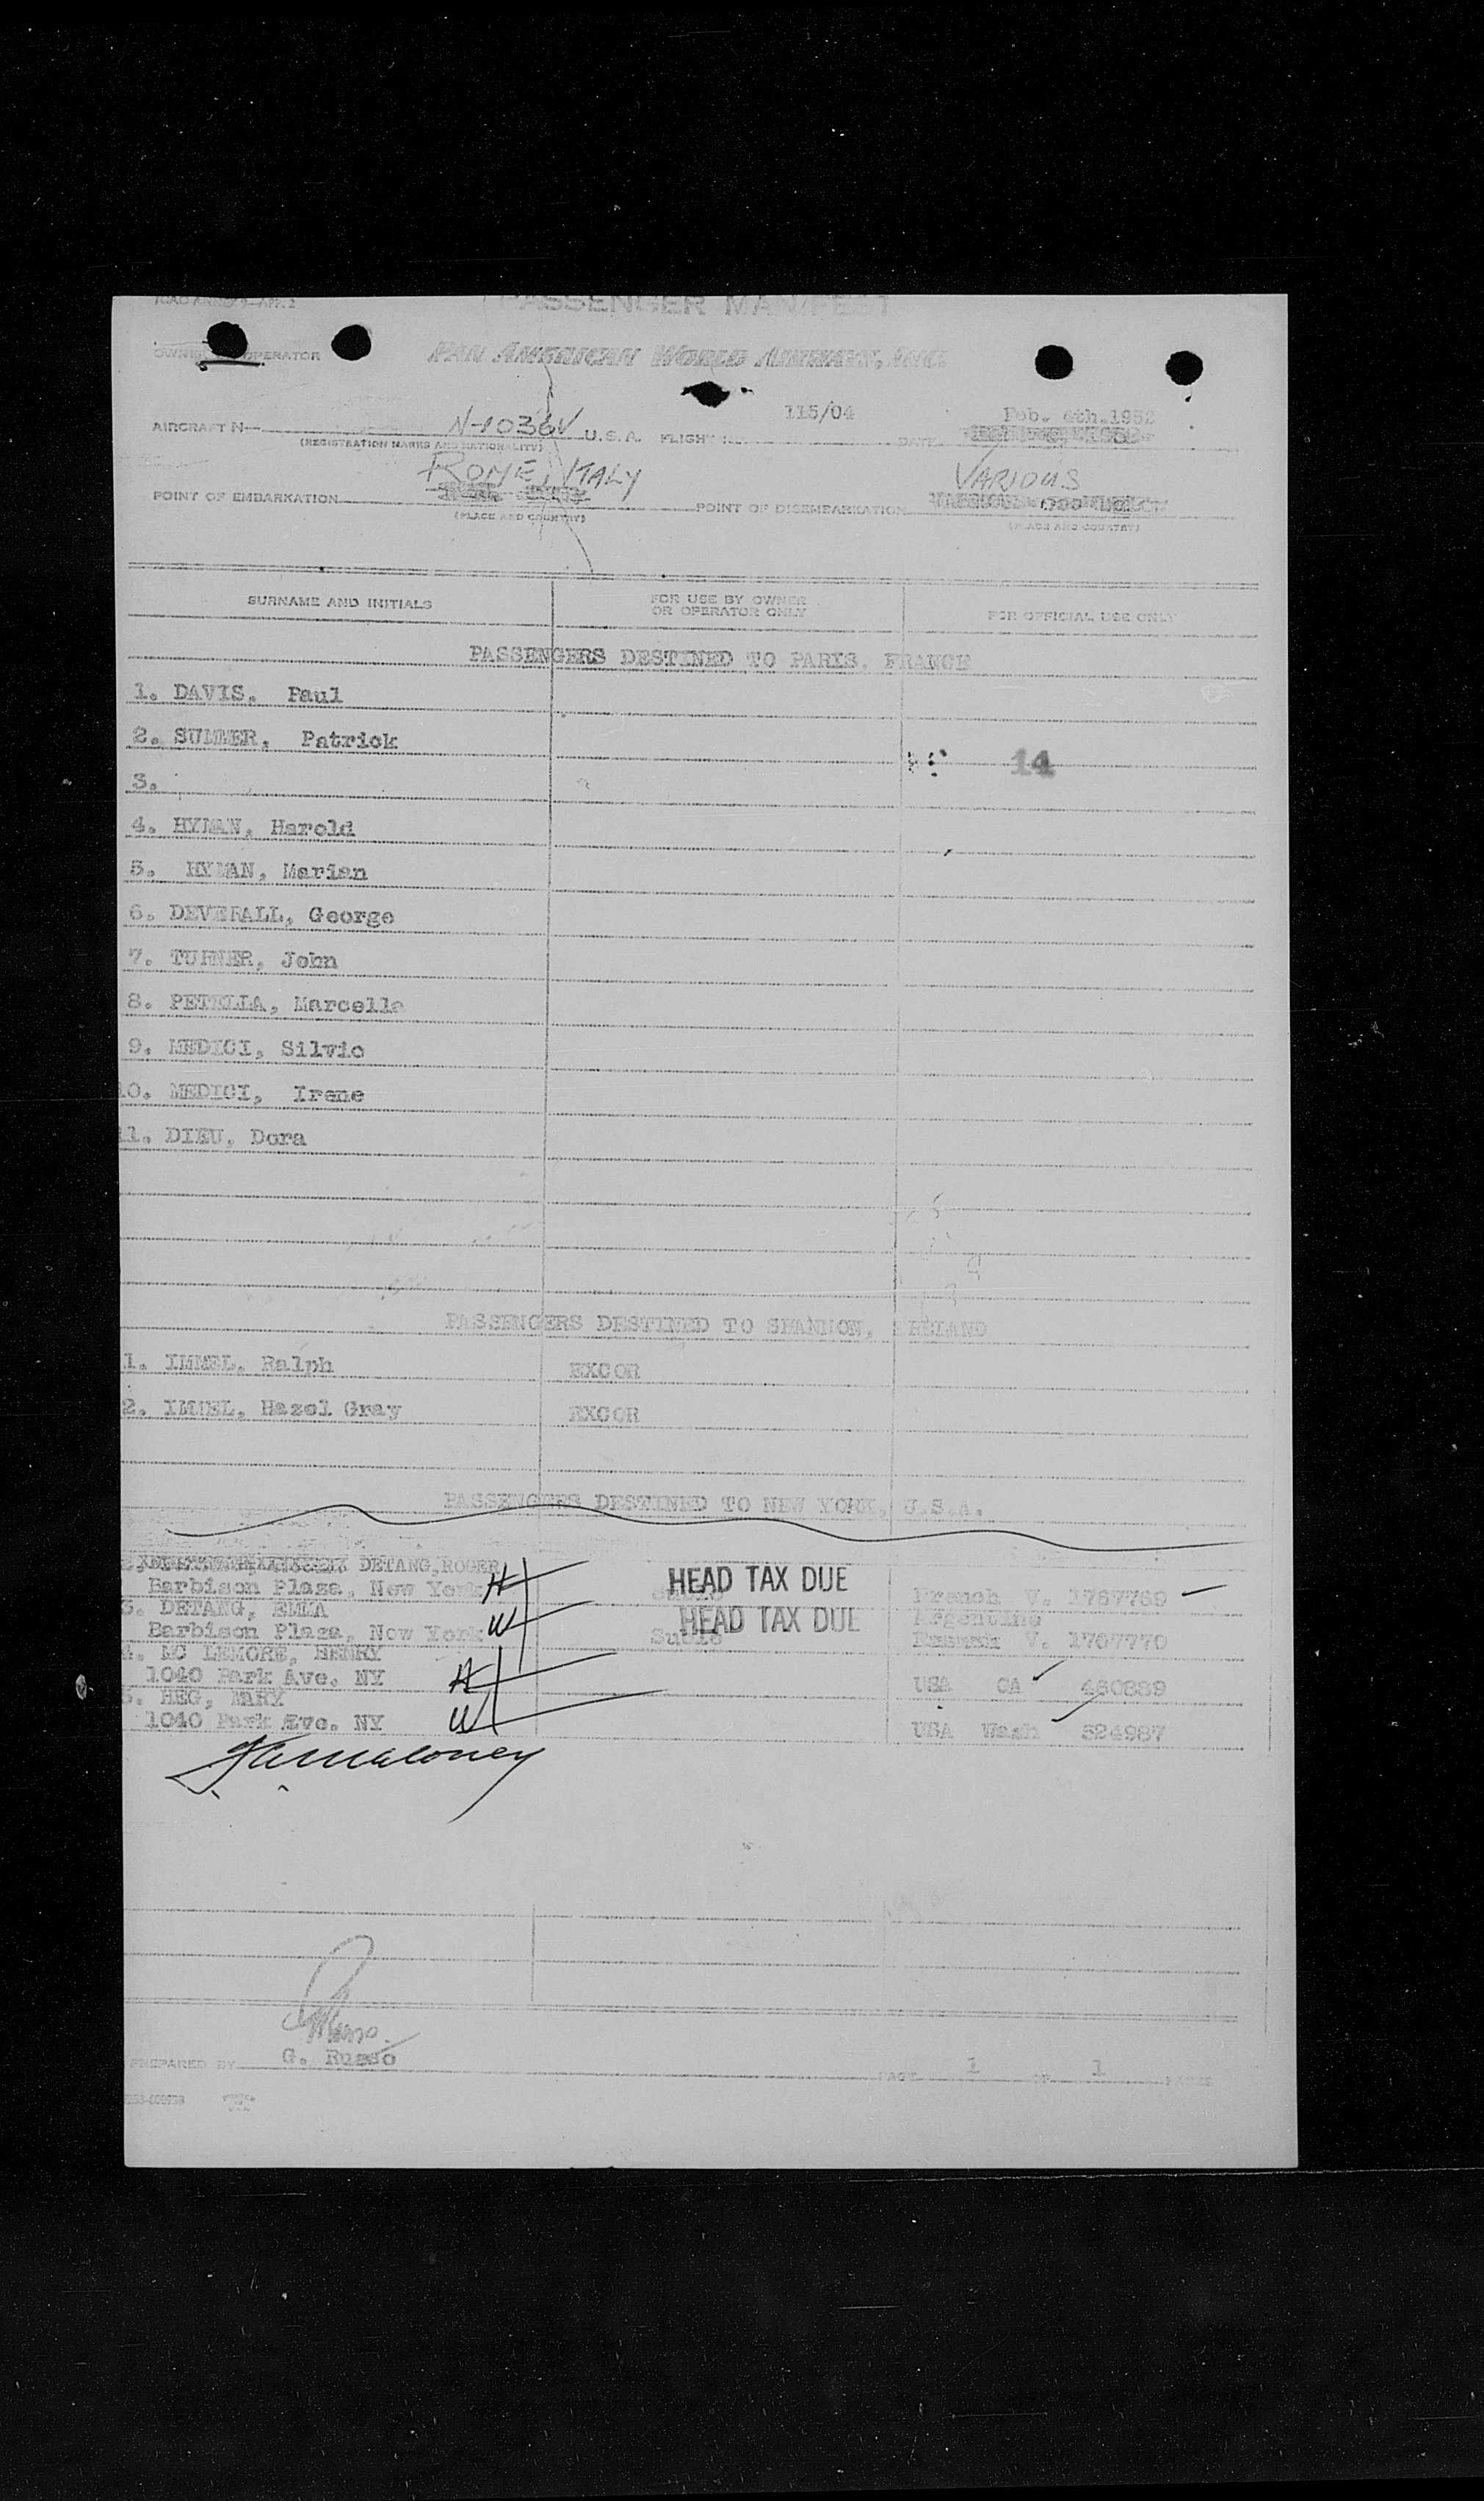 ICAO ANNEX 9—APP. 2
PASSENGER MANIFEST
OWNER OPERATOR PAN AMERICAN WORLD AIRWAYS, INC.
AIRCRAFT N— N-1036V U.S.A. FLIGHT 115/04 DATE Feb. 4th.1952
(REGISTRATION MARKS AND NATIONALITY)
POINT OF EMBARKATION ROME, ITALY POINT OF DISEMBARKATION VARIOUS
(PLACE AND COUNTRY) (PLACE AND COUNTRY)
SURNAME AND INITIALS FOR USE BY OWNER OR OPERATOR ONLY FOR OFFICIAL USE ONLY
PASSENGERS DESTINED TO PARIS. FRANCE
1. DAVIS. Paul
2. SUMMER, Patrick
14
3.
4. HYMAN, Harold
5. HYMAN, Marian
6. DEVERALL, George
7. TURNER, John
8. PETELLA, Marcella
9. MEDICI, Silvio
10. MEDICI, Irene
11. DIEU, Dora
PASSENGERS DESTINED TO SHANNON, IRELAND
1. IMMEL, Ralph EXCOR
2. IMMEL, Hazel Gray EXCOR
PASSENGERS DESTINED TO NEW YORK, U.S.A.
DETANG,ROGER
Barbison Plaza, New York H HEAD TAX DUE French V. 1767769
3. DETANG, EMMA HEAD TAX DUE Argentine
Barbison Plaza, New York W Subie V. 1767770
4. MC LEMORE, HENRY
1040 Park Ave. NY H USA CA 460889
5. HEG, MARY
1040 Park Ave. NY W USA Wash 524987
PREPARED BY G. Russo PAGE 1 OF 1 PAGES